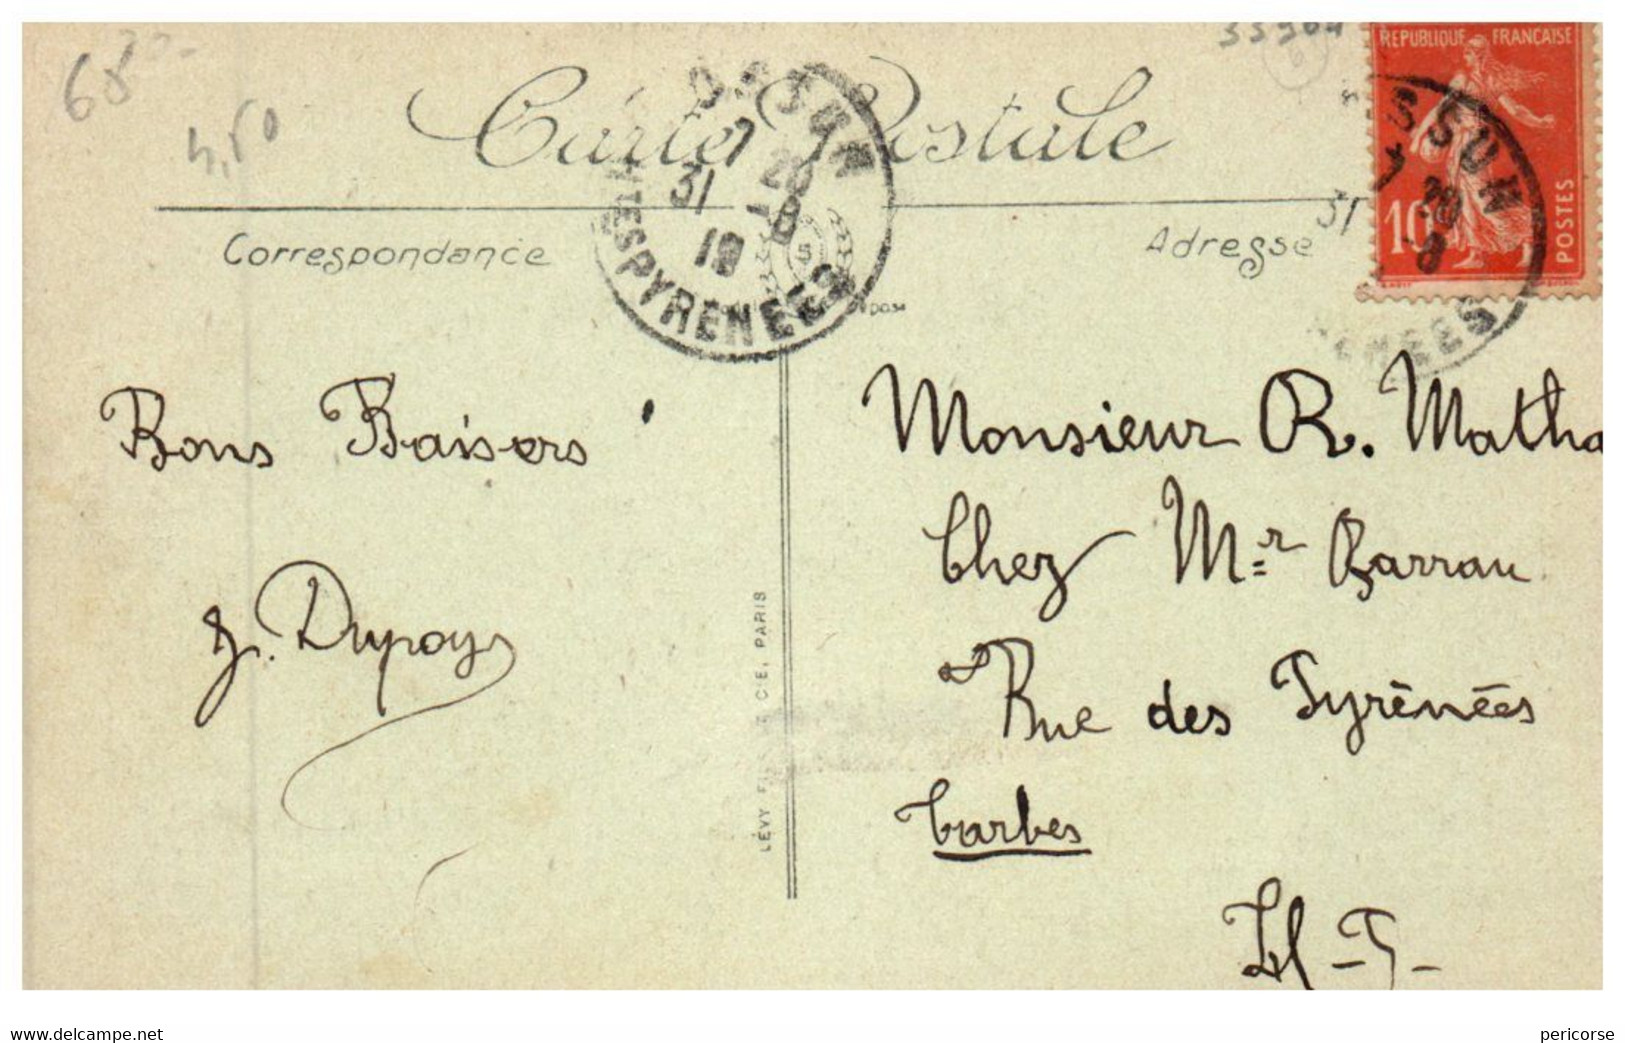 68
4,50
Carte Postale
Correspondance
Adresse
RÉPUBLIQUE FRANÇAISE
10
POSTES
OSSUN
7 20
31 -8
19
HTES PYRÉNÉES
SSUN
7 20
31 8
ÉNÉES
Bons Baisers
J. Dupouy
LÉVY FILS CIE, PARIS
Monsieur R. Matha
Chez Mr Barrau
Rue des Pyrénées
Tarbes
H-P-
www.delcampe.net
pericorse